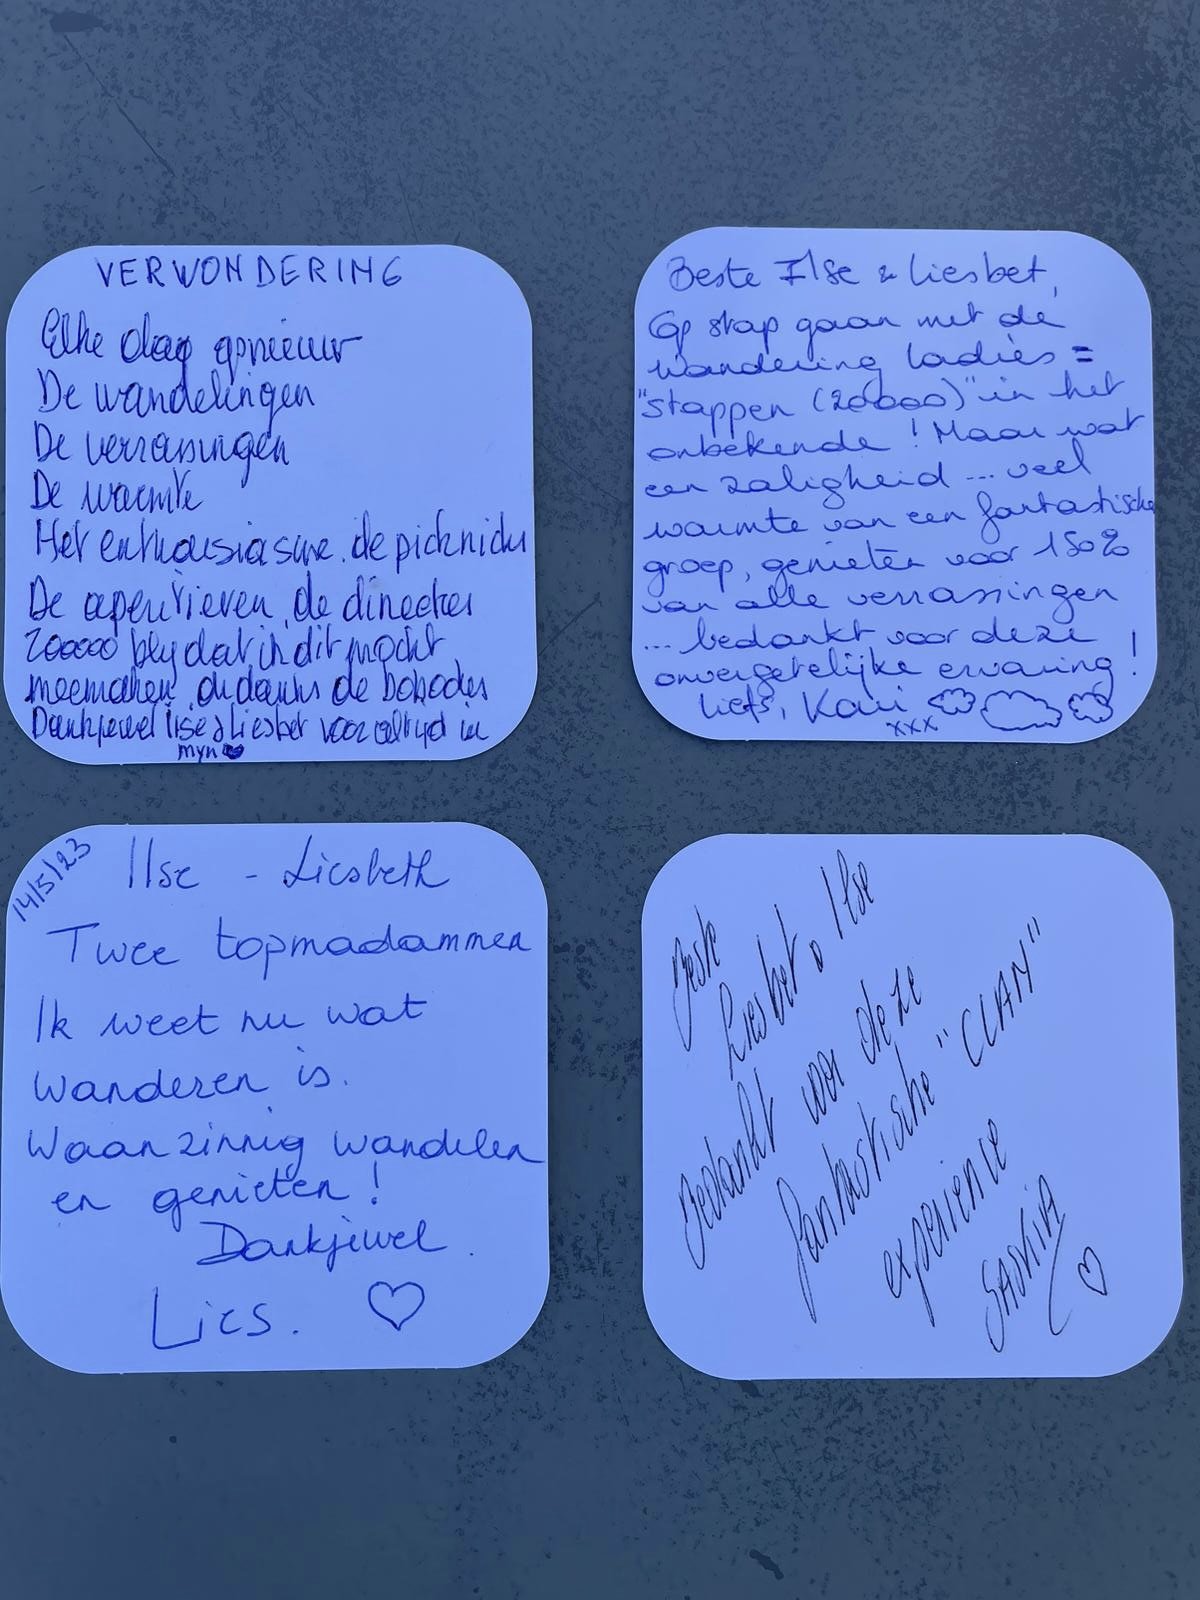 VERWONDERING
Elke dag opnieuw
De wandelingen
De verrassingen
De warmte
Het enthousiasme. de picknicks
De aperitieven, de dineetjes
200000 bly dat ik dit mocht
meemaken, ondanks de
Dankjewel Ilse & Liesbet voor altijd in
myn
Beste Ilse & Liesbet,
Op stap gaan met de
wandering ladies =
"stappen (20000)" in het
onbekende! Maar wat
een zaligheid ... veel
warmte van een fantastische
groep, genieten voor 150%
van alle verrassingen
... bedankt voor deze
onvergetelijke ervaring!
Liefs, Kari
xxx
14/5/23
Ilse - Liesbeth
Twee topmadammen
Ik weet nu wat
wanderen is.
Waanzinnig wandelen
en genieten!
Dankjewel.
Lies.
Beste
Liesbet & Ilse
Bedankt voor deze
fantastische "CLAN"
experience
SASKIA